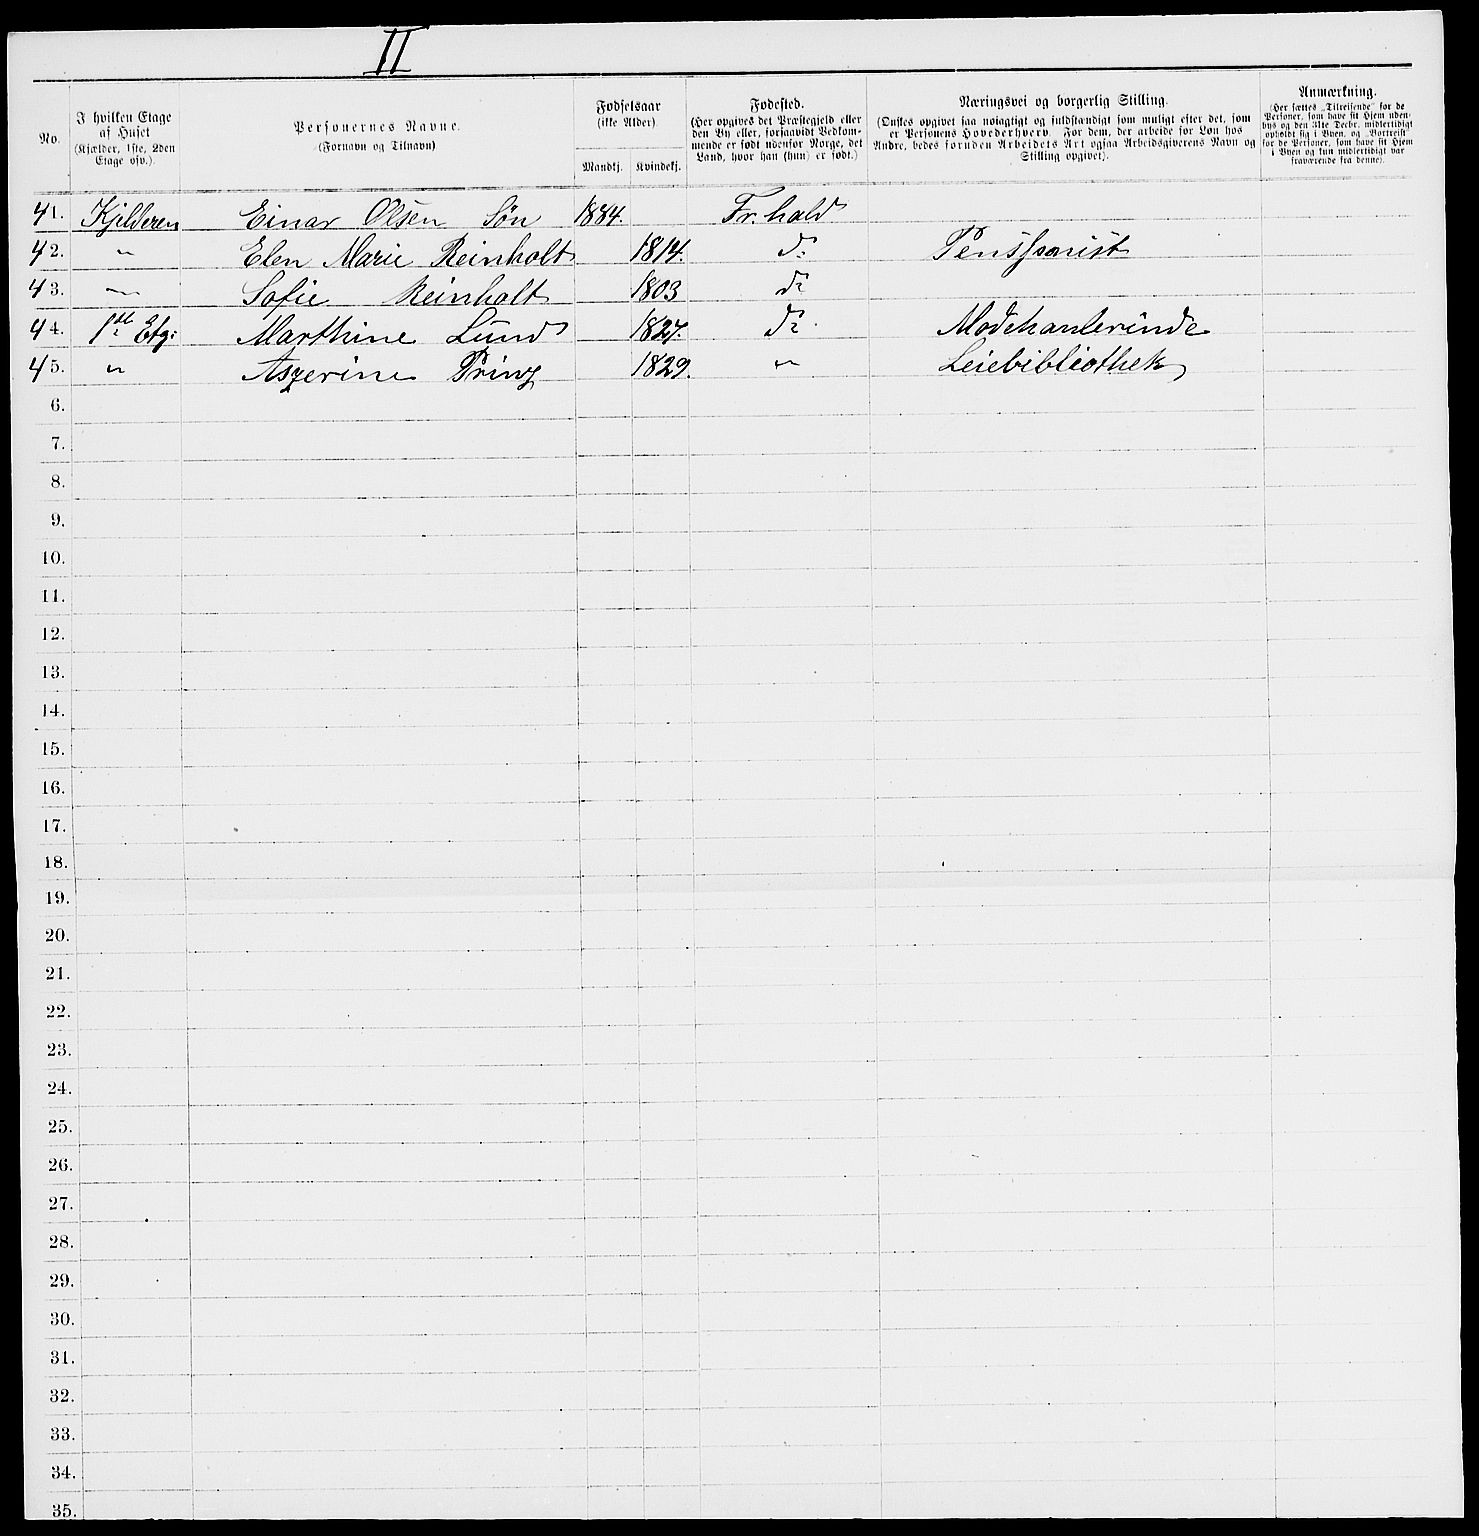 II
No.
I hvilken Etage af Huset (Kjælder, 1ste, 2den Etage osv.).
Personernes Navne. (Fornavn og Tilnavn)
Fødselsaar (ikke Alder).
Mandkj. Kvindekj.
Fødested. (Her opgives det Præstegjeld eller den By eller, forsaavidt Vedkommende er født udenfor Norge, det Land, hvor han (hun) er født.)
Næringsvei og borgerlig Stilling. (Ønskes opgivet saa nøiagtigt og fuldstændigt som muligt efter det, som er Personens Hovederhverv. For dem, der arbeide for Løn hos Andre, bedes foruden Arbeidets Art ogsaa Arbeidsgiverens Navn og Stilling opgivet).
Anmærkning. (Her sættes „Tilreisende" for de Personer, som have sit Hjem udenbys og den 31te Decbr. midlertidigt opholdt sig i Byen, og „Bortreist" for de Personer, som have sit Hjem i Byen og kun midlertidigt var fraværende fra denne).
41. Kjelderen Einar Olsen Søn 1884. Fr.hald
42. " Elen Marie Reinholt 1814. do Pensjonist
43. " Sofie Reinholt 1803 do
44. 1ste Etg: Marthine Lund 1827. do Modehanlerinde
45. " Aszerine Prinz 1829. " Leiebibliothek
6.
7.
8.
9.
10.
11.
12.
13.
14.
15.
16.
17.
18.
19.
20.
21.
22.
23.
24.
25.
26.
27.
28.
29.
30.
31.
32.
33.
34.
35.